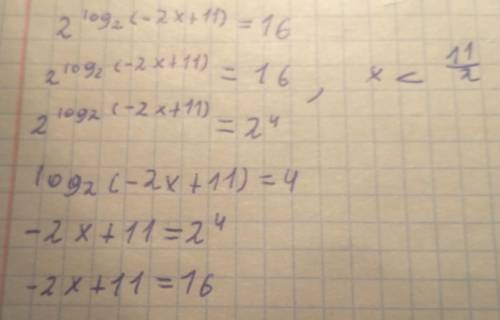 2^{log₂(-2x+11)} = 16
2^{log₂(-2x+11)} = 16, x < 11/2
2^{log₂(-2x+11)} = 2⁴
log₂(-2x+11) = 4
-2x+11 = 2⁴
-2x+11 = 16